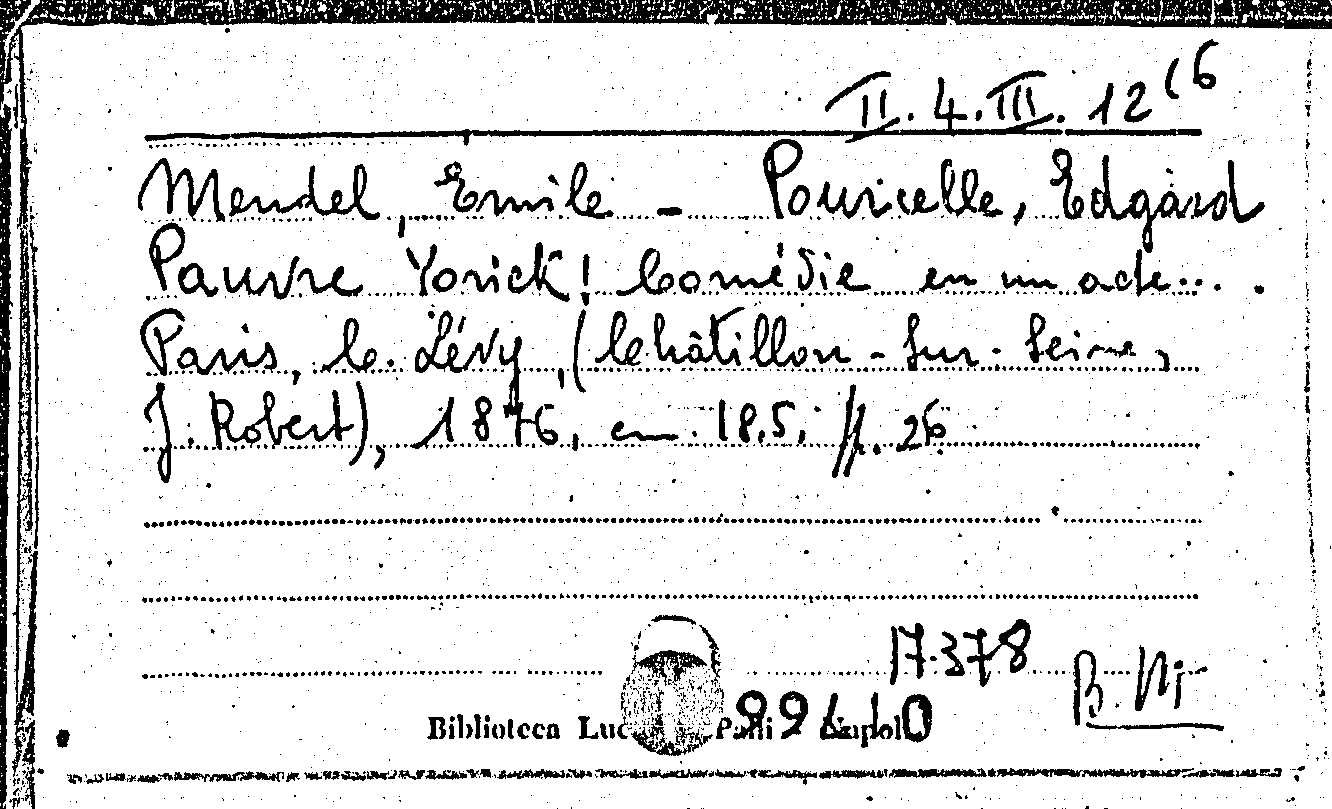 II. 4. III. 12 (6
Mendel, Emile - Pouricelle, Edgárd
Pauvre Yorick! Comédie en un acte... .
Paris, C. Lévy, (Châtillon-sur-Seine,
J. Robert), 1876, in 18.5. pp. 26
17.378
B. Ni
Biblioteca Luc